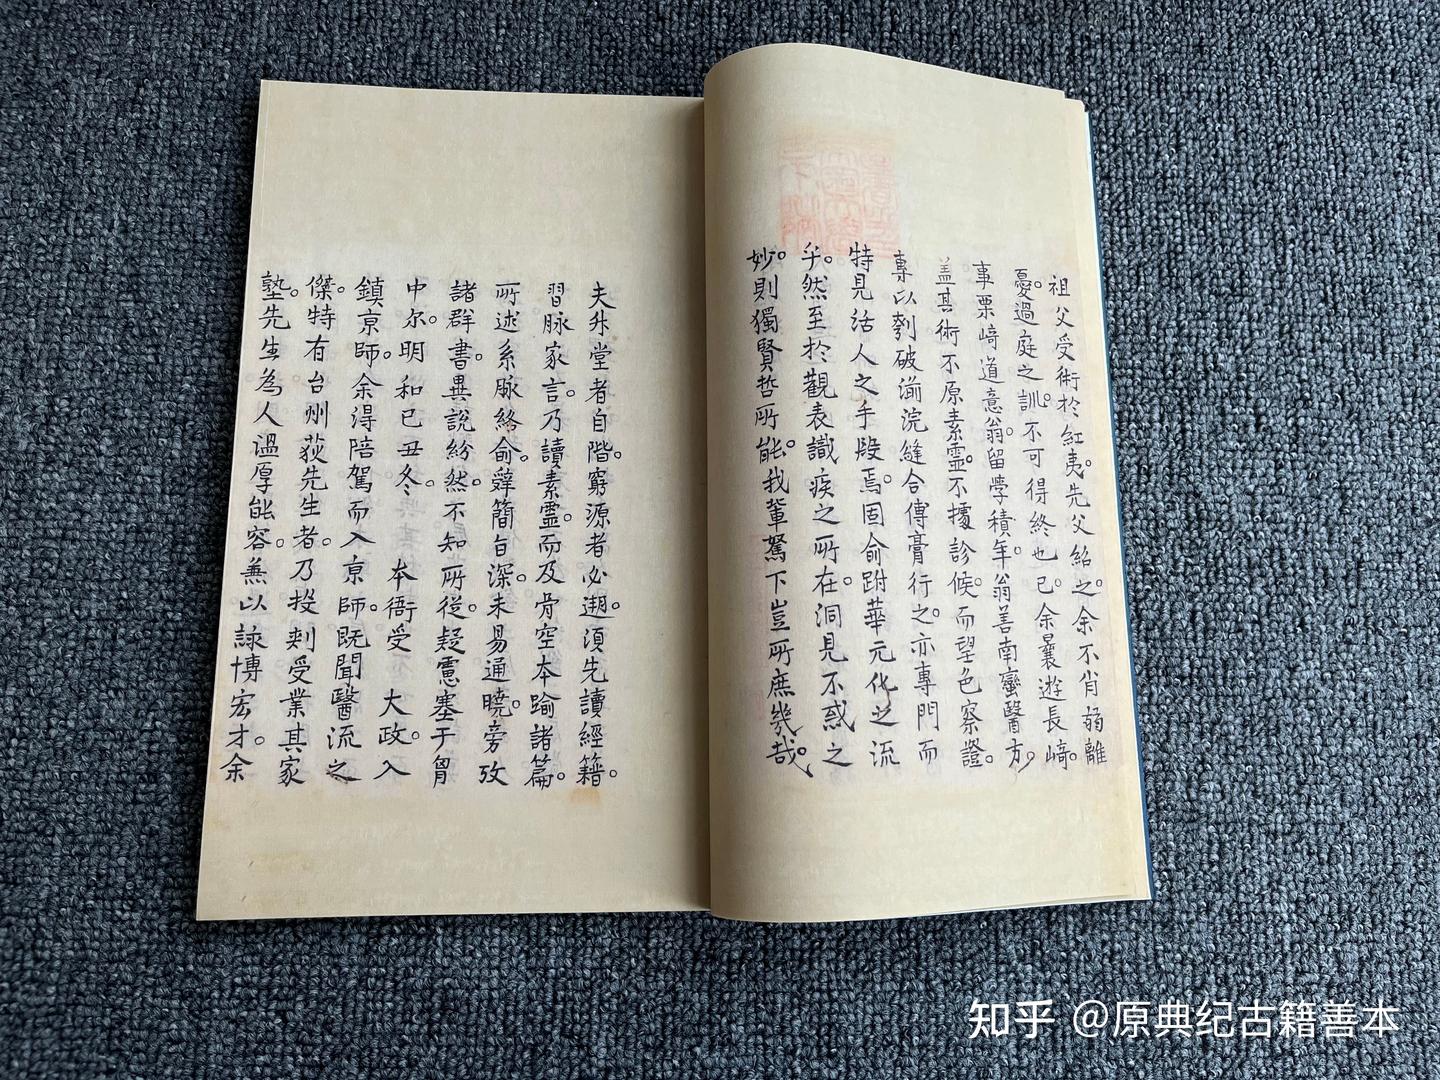 祖父受術於紅夷。先父紹之。余不肖弱離
憂。過庭之訓。不可得終也已。余曩遊長﨑。
事栗﨑道意翁。留學積年。翁善南蠻醫方。
盖其術不原素靈。不據診候。而望色察證。
專以刳破湔浣縫合傅膏行之。亦專門而
特見活人之手段焉。固俞跗華元化之流
乎。然至於觀表識疾之所在。洞見不惑之
妙。則獨賢哲所能。我輩駑下豈所庶幾哉。
夫升堂者自階。窮源者必遡。須先讀經籍。
習脉家言。乃讀素靈。而及骨空本踰諸篇。
所述系脉絡俞。辭簡旨深。未易通曉。旁攷
諸群書。異説紛然。不知所從。疑慮塞于胷
中尔。明和己丑冬。本衙受大政。入
鎮京師。余得陪駕而入京師。既聞醫流之
傑。特有台州荻先生者。乃投刺受業其家
塾。先生為人温厚能容。兼以詠博宏才。余
知乎 @原典纪古籍善本